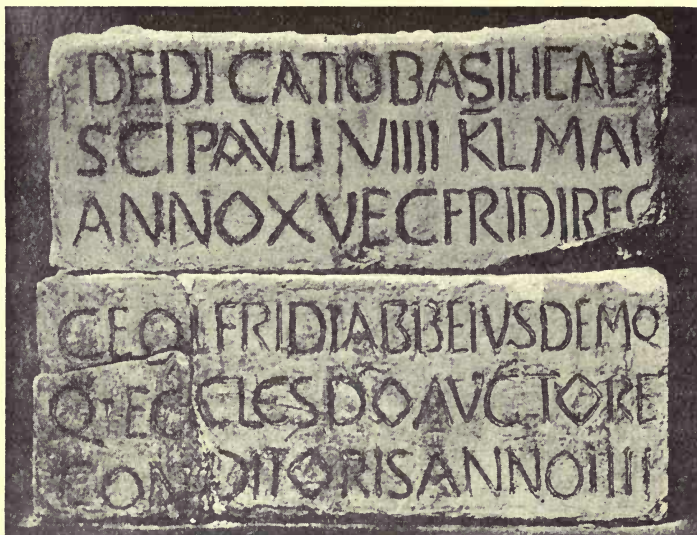 DEDICATIO BASILICAE
SCI PAVLI VIIII KL MAI
ANNO XV ECFRIDI REG
CEOLFRIDI ABB EIVSDEMQ
Q· ECCLES DO AVCTORE
CONDITORIS ANNO IIII